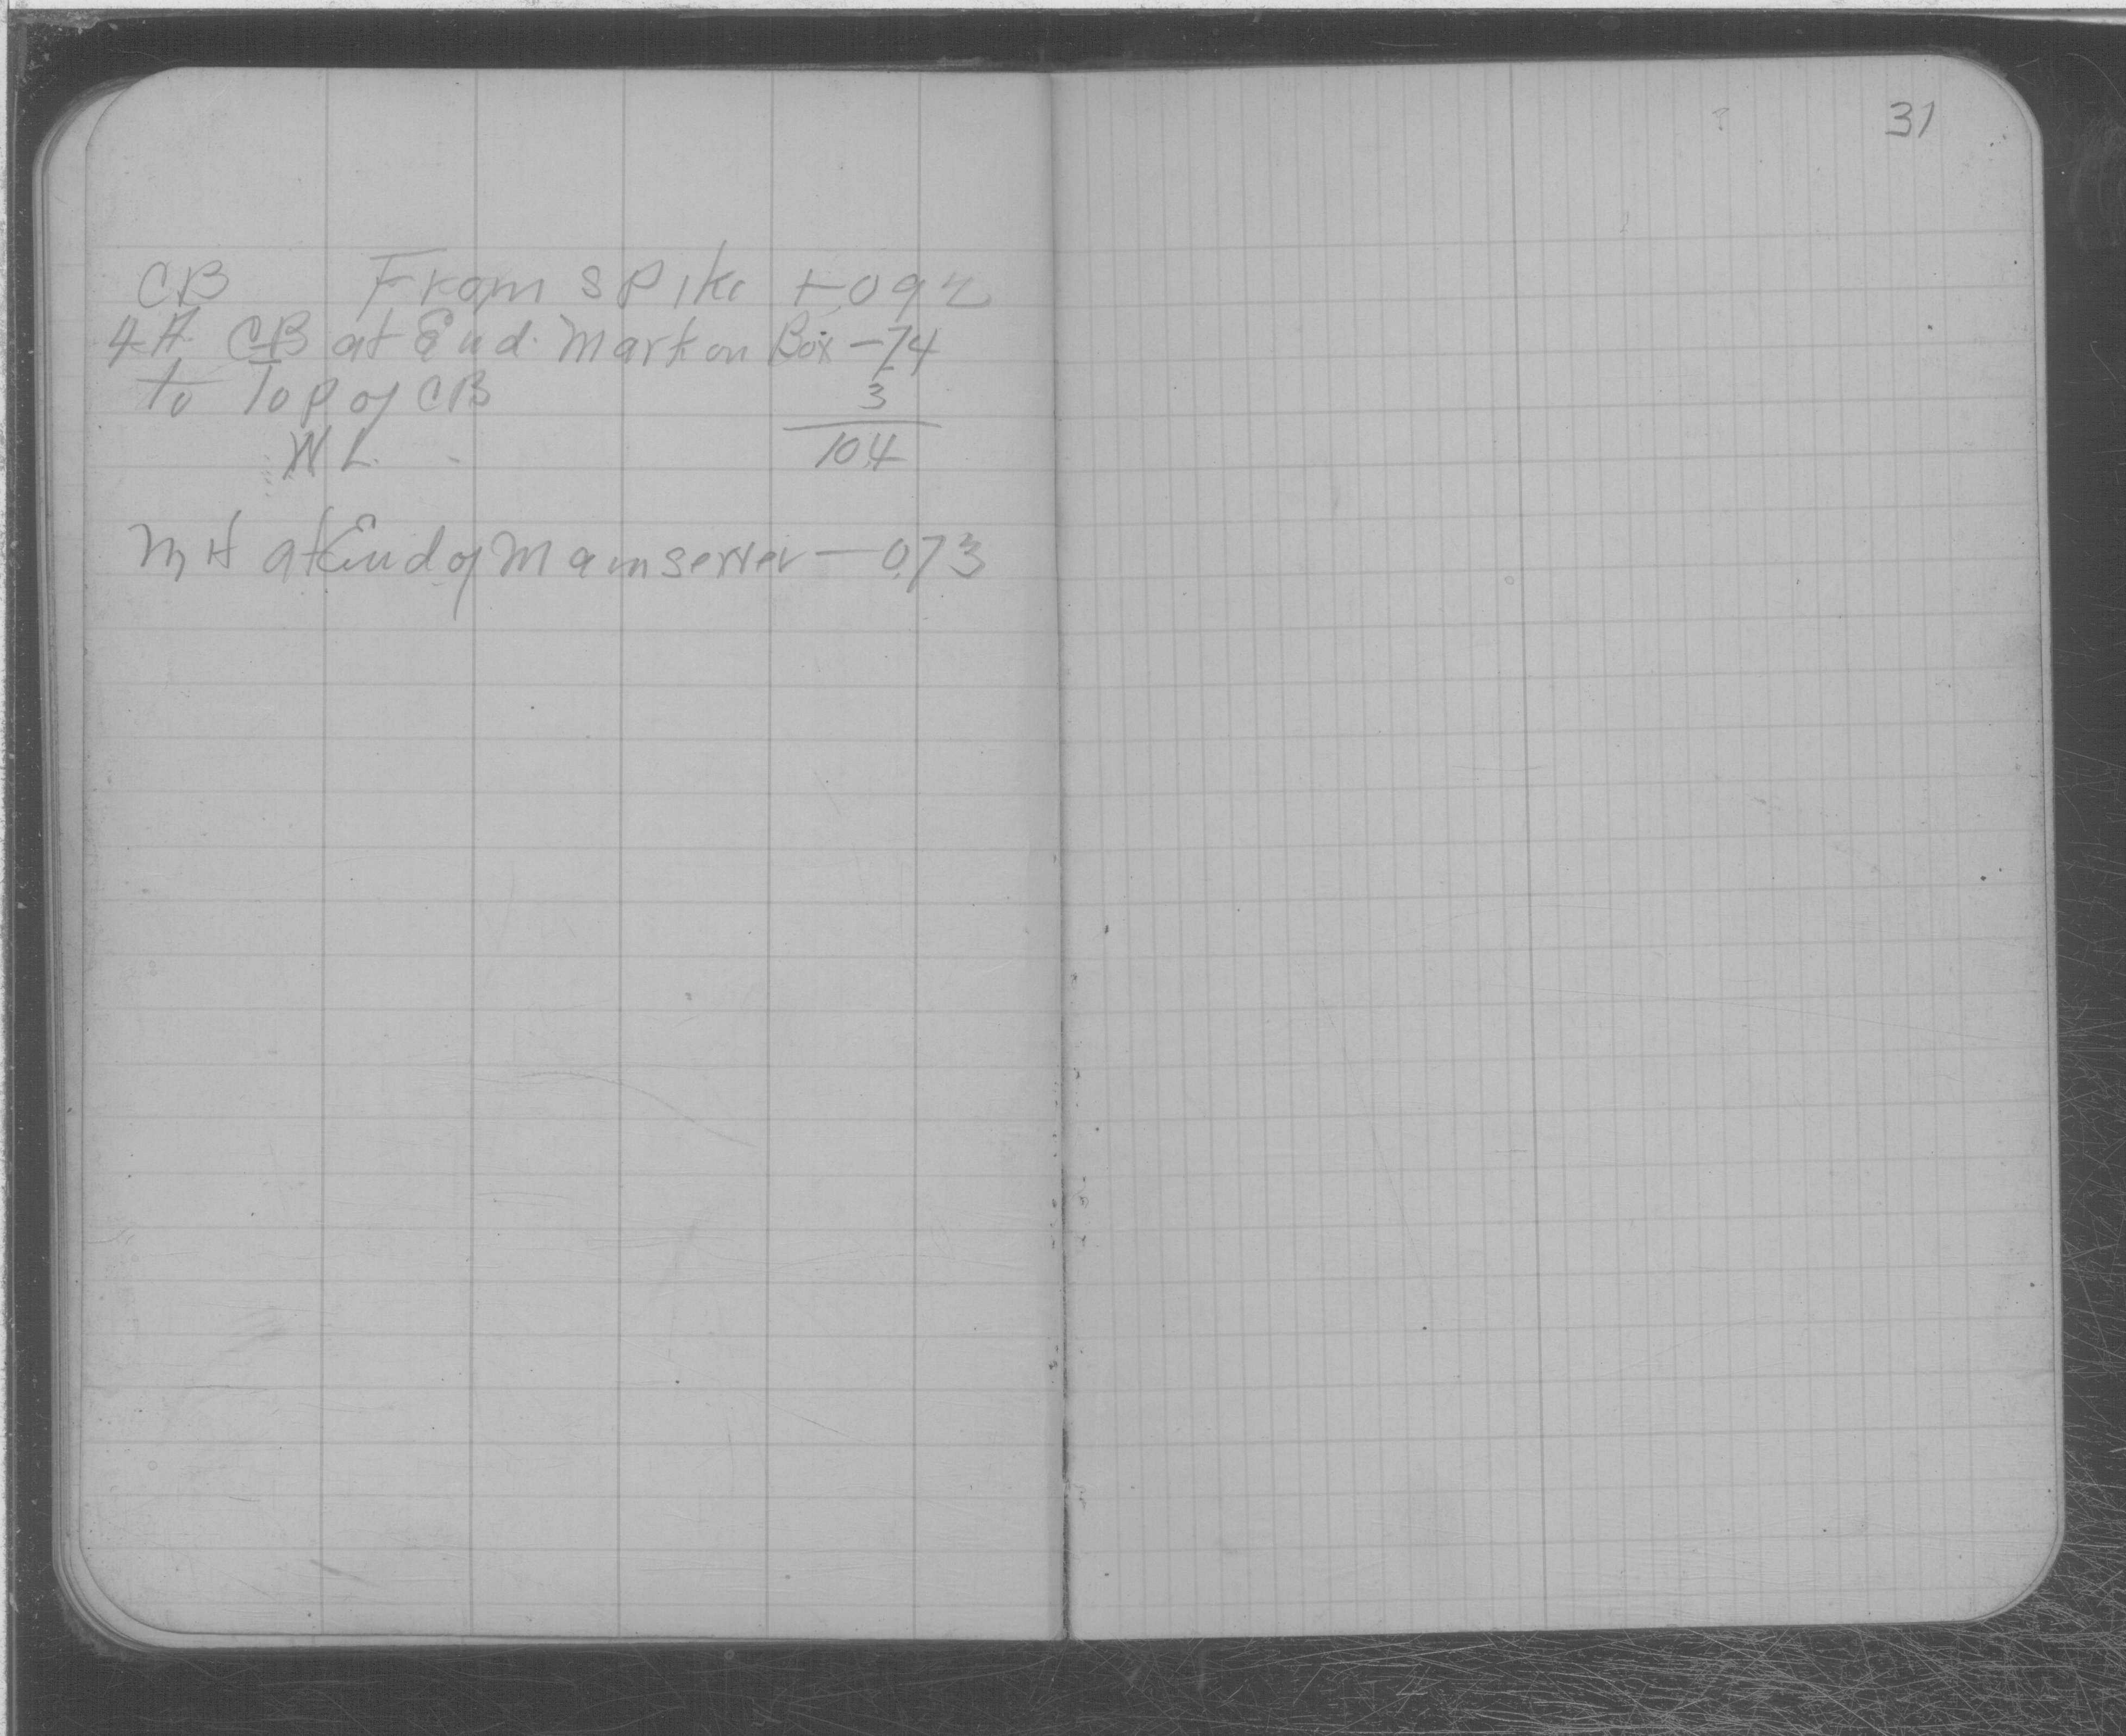 CB From spike +092
4 ft CB at End. Mark on Box -74
to Top of CB 3
W L. 104
MH at End of Main sewer - 0.73
31